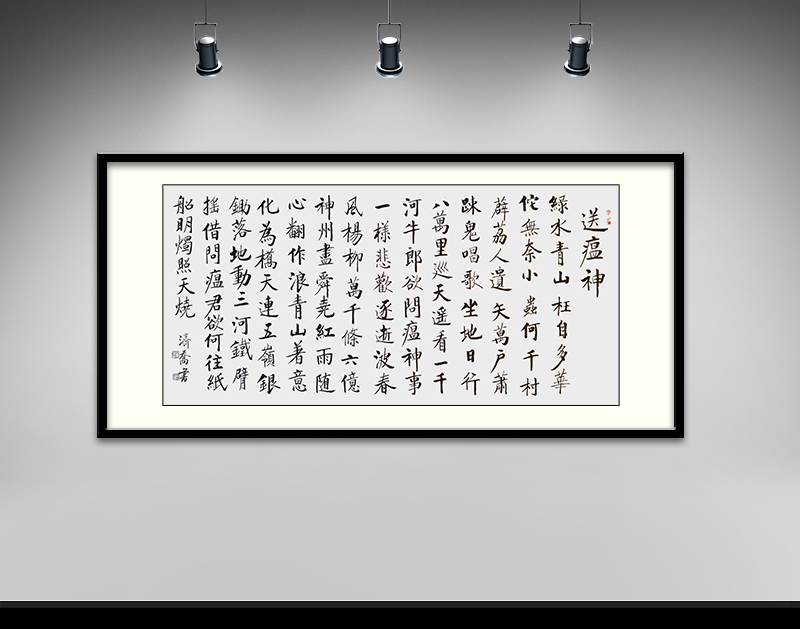 送瘟神
綠水青山枉自多華
佗無奈小蟲何千村
薜荔人遺矢萬户蕭
踈鬼唱歌坐地日行
八萬里巡天遥看一千
河牛郎欲問瘟神事
一樣悲歡逐逝波春
風楊柳萬千條六億
神州盡舜堯紅雨随
心翻作浪青山著意
化為橋天連五嶺銀
鋤落地動三河鐵臂
摇借問瘟君欲何往紙
船明燭照天燒
濟喬書